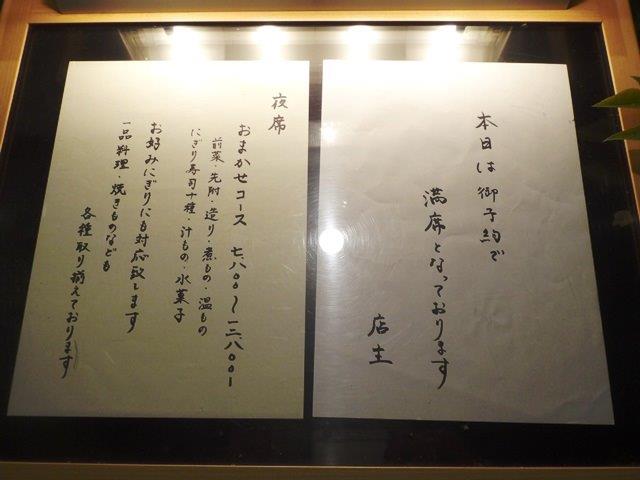 本日は御予約で
満席となっております
店主
夜席
おまかせコース 七、八〇〇〜一二、八〇〇ー
前菜・先附・造り・煮もの・温もの
にぎり寿司十種・汁もの・水菓子
お好みにぎりにも対応致します
一品料理・焼きものなども
各種取り揃えております